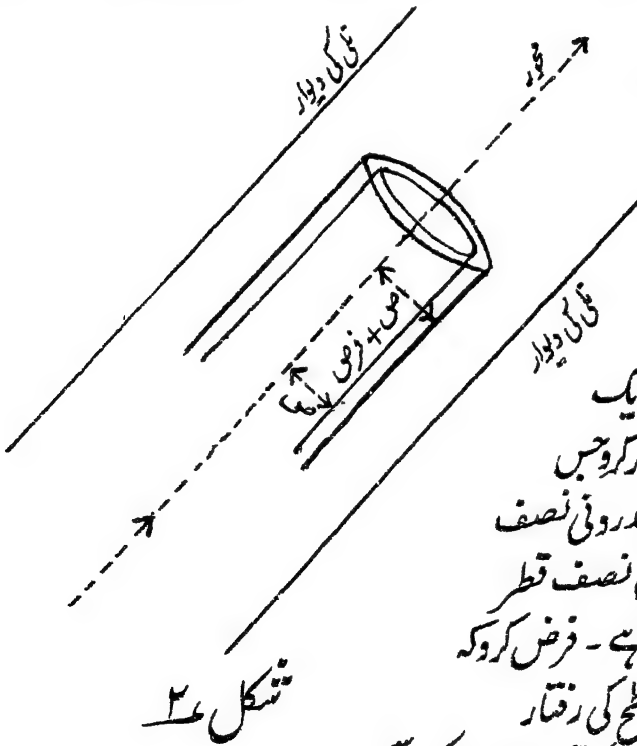 نلی کی دیوار
محور
نلی کی دیوار
ص + فرص
ص
یک
کرو جس
درونی نصف
نصف قطر
ہے - فرض کروکہ
طح کی رفتار
شکل ۲